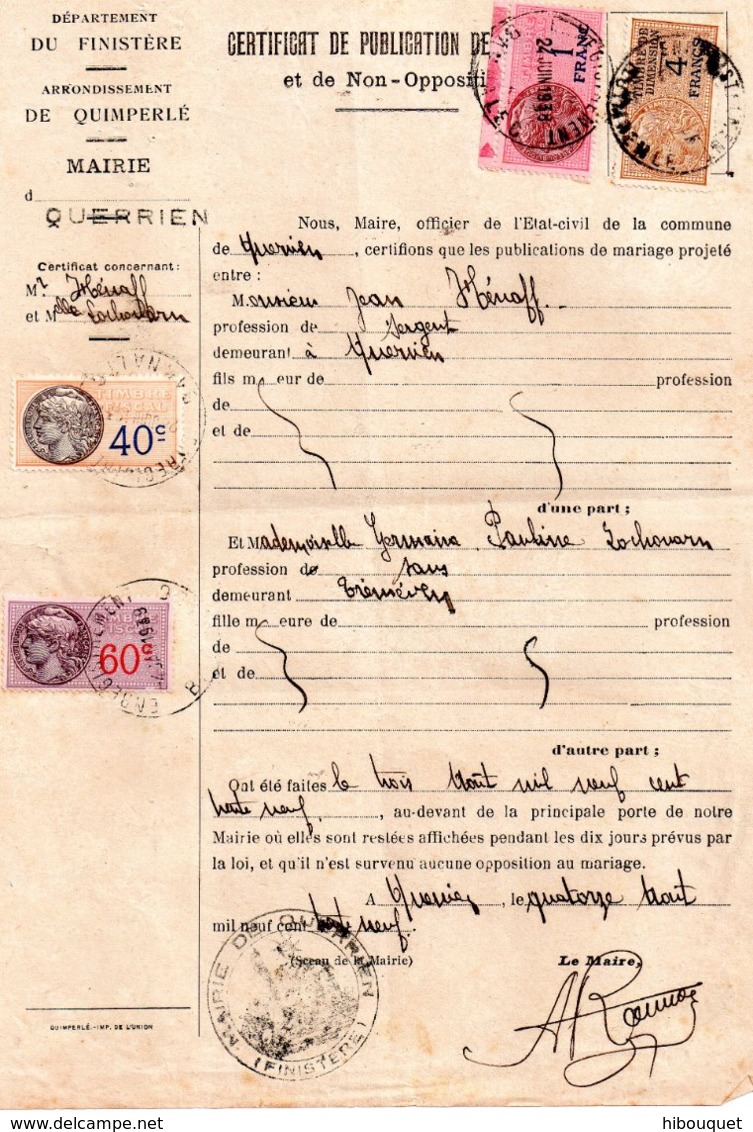 DÉPARTEMENT
DU FINISTÈRE
ARRONDISSEMENT
DE QUIMPERLÉ
MAIRIE
d
QUERRIEN
Certificat concernant:
Mr Hénaff
et Melle Lochouarn
TIMBRE
FISCAL
40c
60c
QUIMPERLÉ.-IMP. DE L'UNION
CERTIFICAT DE PUBLICATION DE
et de Non-Oppositi
1
FRANC
24 JUIN 1938
TIMBRE DE
DIMENSION
4
FRANCS
Nous, Maire, officier de l'Etat-civil de la commune
de Querrien, certifions que les publications de mariage projeté
entre :
Monsieur Jean Hénaff
profession de Sergent
demeurant à Querrien
fils m eur de profession
de
et de
d'une part ;
Et Mademoiselle Germaine Pauline Lochouarn
profession de sans
demeurant Tréméven
fille m eure de profession
de
et de
d'autre part ;
Ont été faites le trois Aout mil neuf cent
trente neuf, au-devant de la principale porte de notre
Mairie où elles sont restées affichées pendant les dix jours prévus par
la loi, et qu'il n'est survenu aucune opposition au mariage.
A Querrien, le quatorze Aout
mil neuf cent trente neuf.
(Sceau de la Mairie) Le Maire,
MAIRIE DE QUERRIEN
(FINISTÈRE)
hibouquet